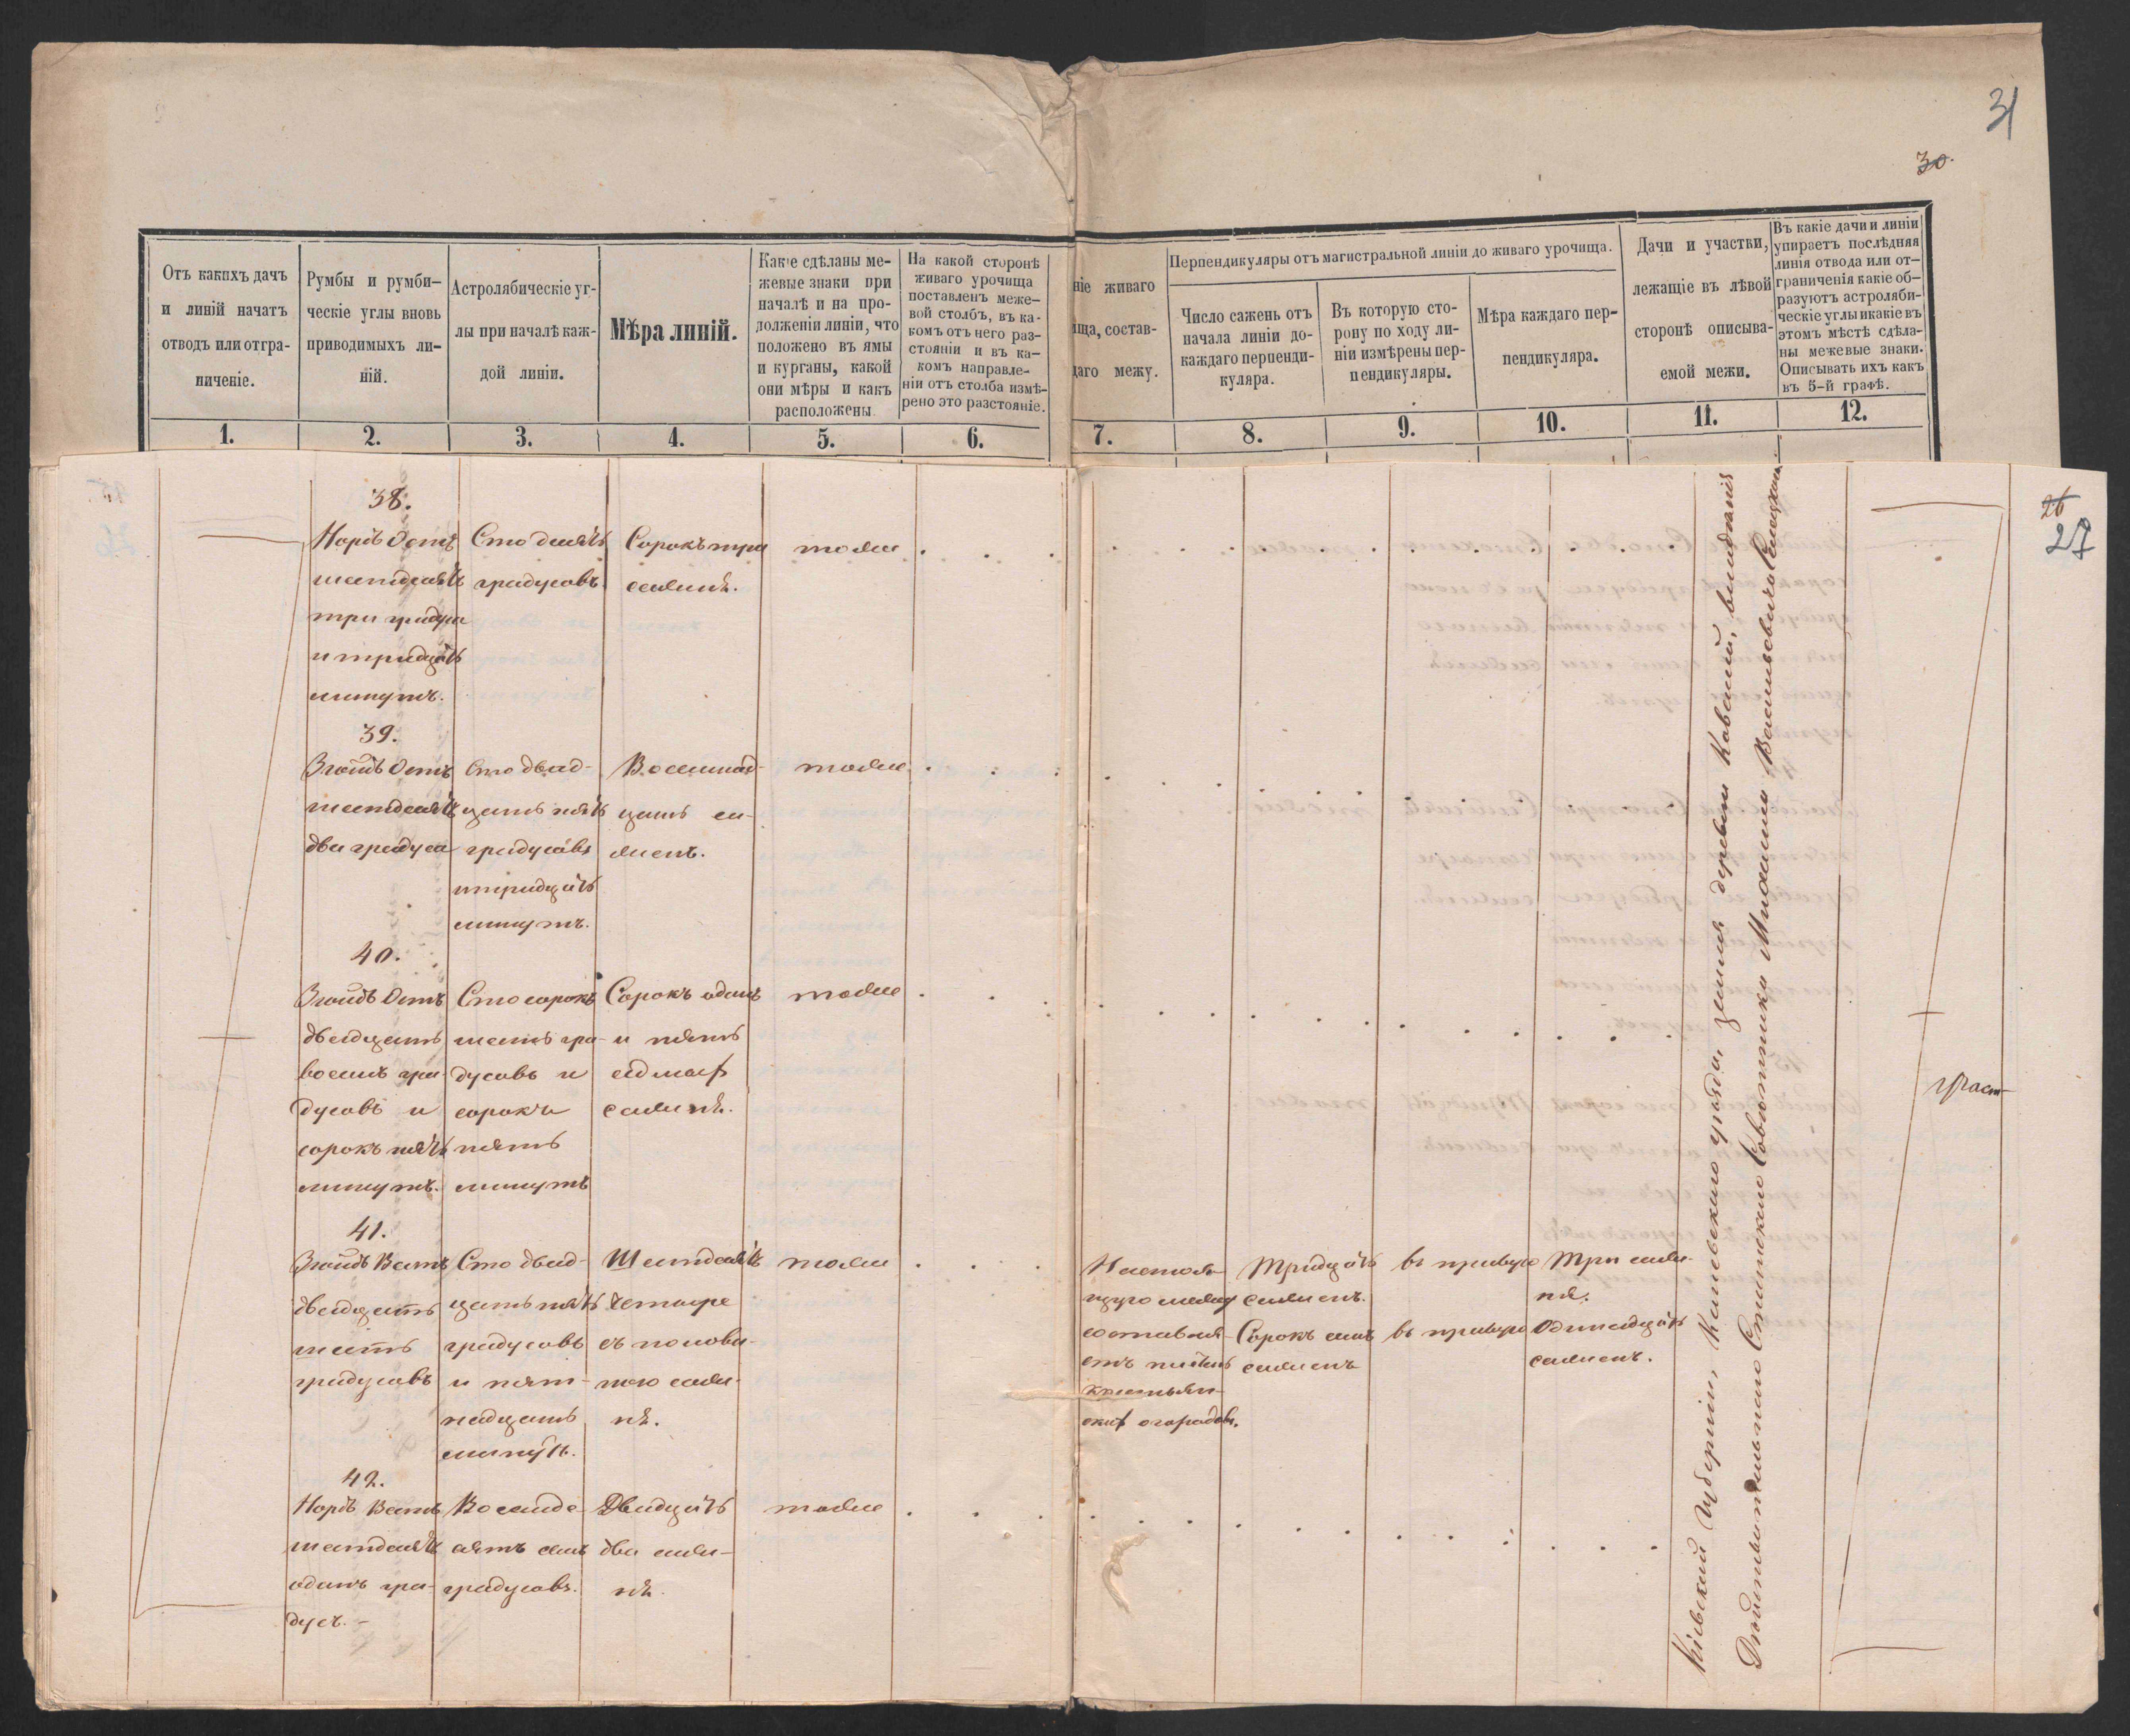 31
30.
Отъ какихъ дачъ
и линій начатъ
отводъ или отгра-
ниченіе.
Румбы и румби-
ческіе углы вновь
приводимыхъ ли-
ній.
Астролябическіе уг-
лы при началѣ каж-
дой линіи.
Мѣра линій.
Какіе сдѣланы ме-
жевые знаки при
началѣ и на про-
долженіи линіи, что
положено въ ямы
и курганы, какой
они мѣры и какъ
расположены
На какой сторонѣ
живаго урочища
поставленъ меже-
вой столбъ, въ ка-
комъ отъ него раз-
стояніи и въ ка-
комъ направле-
ніи отъ столба измѣ-
рено это разстояніе.
ніе живаго
ища, состав-
щаго межу.
Перпендикуляры отъ магистральной линіи до живаго урочища.
Число сажень отъ
начала линіи до-
каждаго перпенди-
куляра.
Въ которую сто-
рону по ходу ли-
ніи измѣрены пер-
пендикуляры.
Мѣра каждаго пер-
пендикуляра.
Дачи и участки,
лежащіе въ лѣвой
сторонѣ описыва-
емой межи.
Въ какіе дачи и линіи
упираетъ послѣдняя
линія отвода или от-
граниченія какіе об-
разуютъ астроляби-
ческіе углы и какіе въ
этомъ мѣстѣ сдѣла-
ны межевые знаки.
Описывать ихъ какъ
въ 5-й графѣ.
1. 2. 3. 4. 5. 6. 7. 8. 9. 10. 11. 12.
26
27
38.
Нордъ Остъ
шестдесятъ
три градуса
и тридцать
минутъ.
Сто десять
градусовъ.
Сорокъ три
сажни.
тоже
39.
Зюйдъ Остъ
шестдесятъ
два градуса
Сто двад-
цать пять
градусовъ
и тридцать
минутъ.
Восемнад-
цать са-
жень.
тоже
40.
Зюйдъ Остъ
двадцать
восемь гра-
дусовъ и
сорокъ пять
минутъ.
Сто сорокъ
шесть гра-
дусовъ и
сорокъ
пять
минутъ
Сорокъ одинъ
и пять
сажни.
тоже
41.
Зюйдъ Вестъ
двадцать
шесть
градусовъ
Сто двад-
цать пять
градусовъ
и пят-
надцать
минутъ.
Шестдесятъ
четыре
съ полови-
ною саж-
ни.
тоже
Настоя-
щую межу
составля-
етъ
крестьян-
скихъ огородовъ.
Тридцать
сажень.
Сорокъ семь
сажень
въ правую
въ правую
Три саж-
ни.
Одинадцать
сажень.
42.
Нордъ Вестъ
шестдесятъ
одинъ гра-
дусъ.-
Восемде-
сятъ семь
градусовъ.
Двадцать
два саж-
ни.
тоже
Кіевской Губерніи, Каневскаго уѣзда, земля деревни Ковалей, владѣнія
Дѣйствительнаго Статскаго Совѣтника Михаила Васильевича